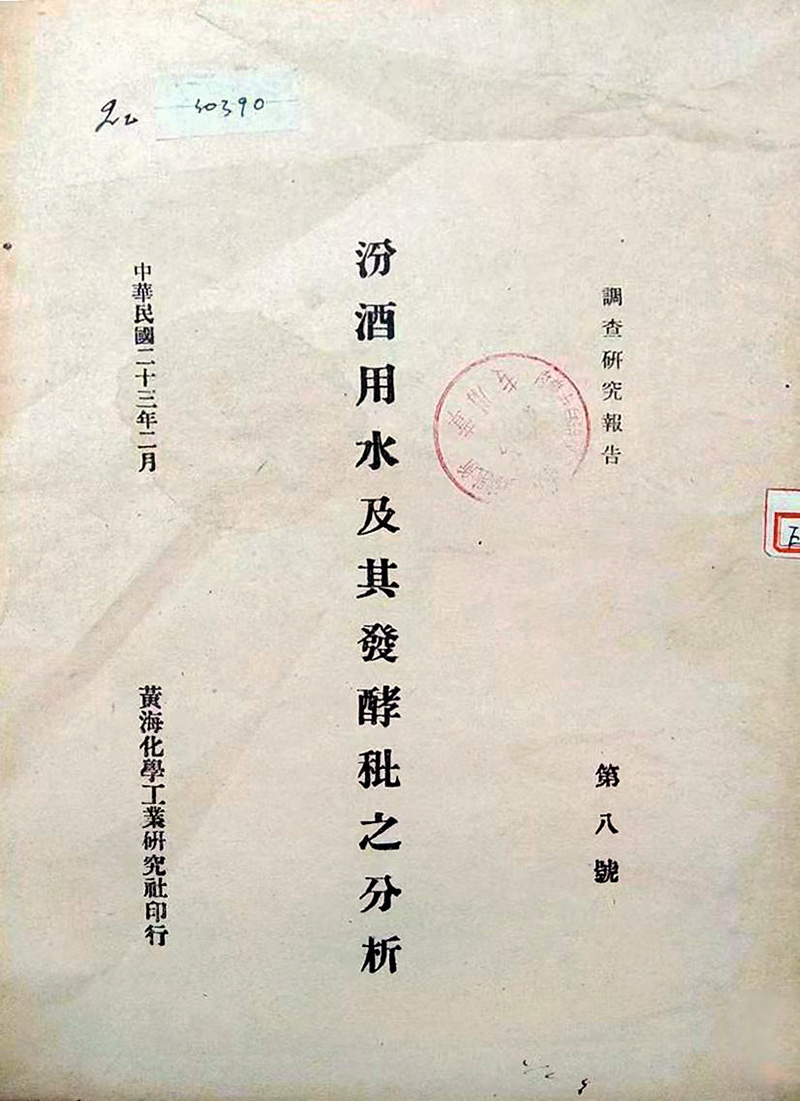 調查研究報告
第八號
汾酒用水及其發酵秕之分析
中華民國二十三年二月
黃海化學工業研究社印行
30390